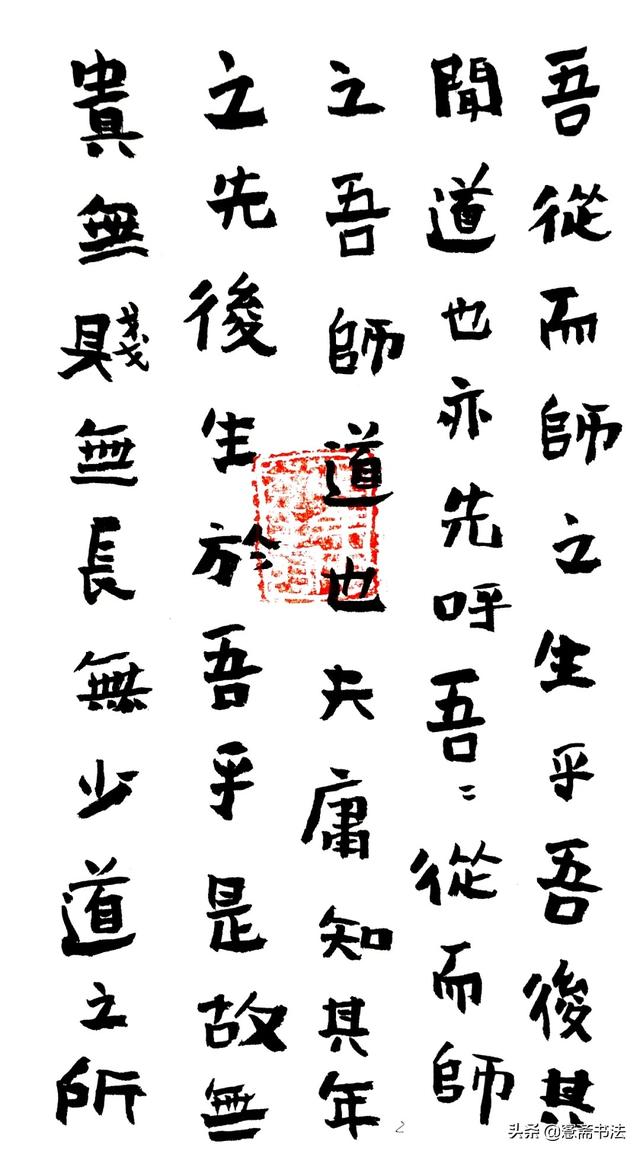 吾從而師之生乎吾後其
聞道也亦先呼吾〻從而師
之吾師道也夫庸知其年
之先後生於吾乎是故無
貴無賤無長無少道之所
2
头条@憲斋书法